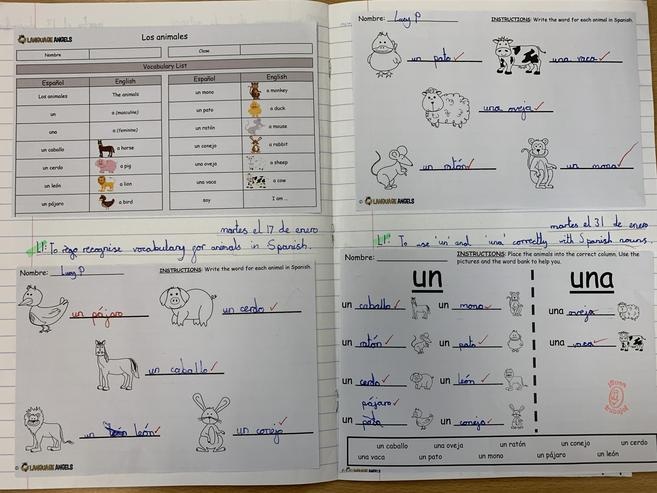 LANGUAGE ANGELS
Los animales
Nombre
Clase
Vocabulary List
Español English
Los animales The animals
un a (masculine)
una a (feminine)
un caballo a horse
un cerdo a pig
un león a lion
un pájaro a bird
Español English
un mono a monkey
un pato a duck
un ratón a mouse
un conejo a rabbit
una oveja a sheep
una vaca a cow
soy I am ...
martes el 17 de enero
LI: To recognise vocabulary for animals in Spanish.
Nombre: Lucy P
INSTRUCTIONS: Write the word for each animal in Spanish.
un pájaro
un cerdo
un caballo
un león
un conejo
© LANGUAGE ANGELS
Nombre: Lucy P
INSTRUCTIONS: Write the word for each animal in Spanish.
un pato
una vaca
una oveja
un ratón
un mono
© LANGUAGE ANGELS
martes el 31 de enero
LI: To use 'un' and 'una' correctly with Spanish nouns.
Nombre:
INSTRUCTIONS: Place the animals into the correct column. Use the
pictures and the word bank to help you.
un
una
un caballo un mono
un ratón un pato
un cerdo un león
pájaro
un pato un conejo
una oveja
una vaca
un caballo una oveja un ratón un conejo un cerdo
una vaca un pato un mono un pájaro un león
© LANGUAGE ANGELS